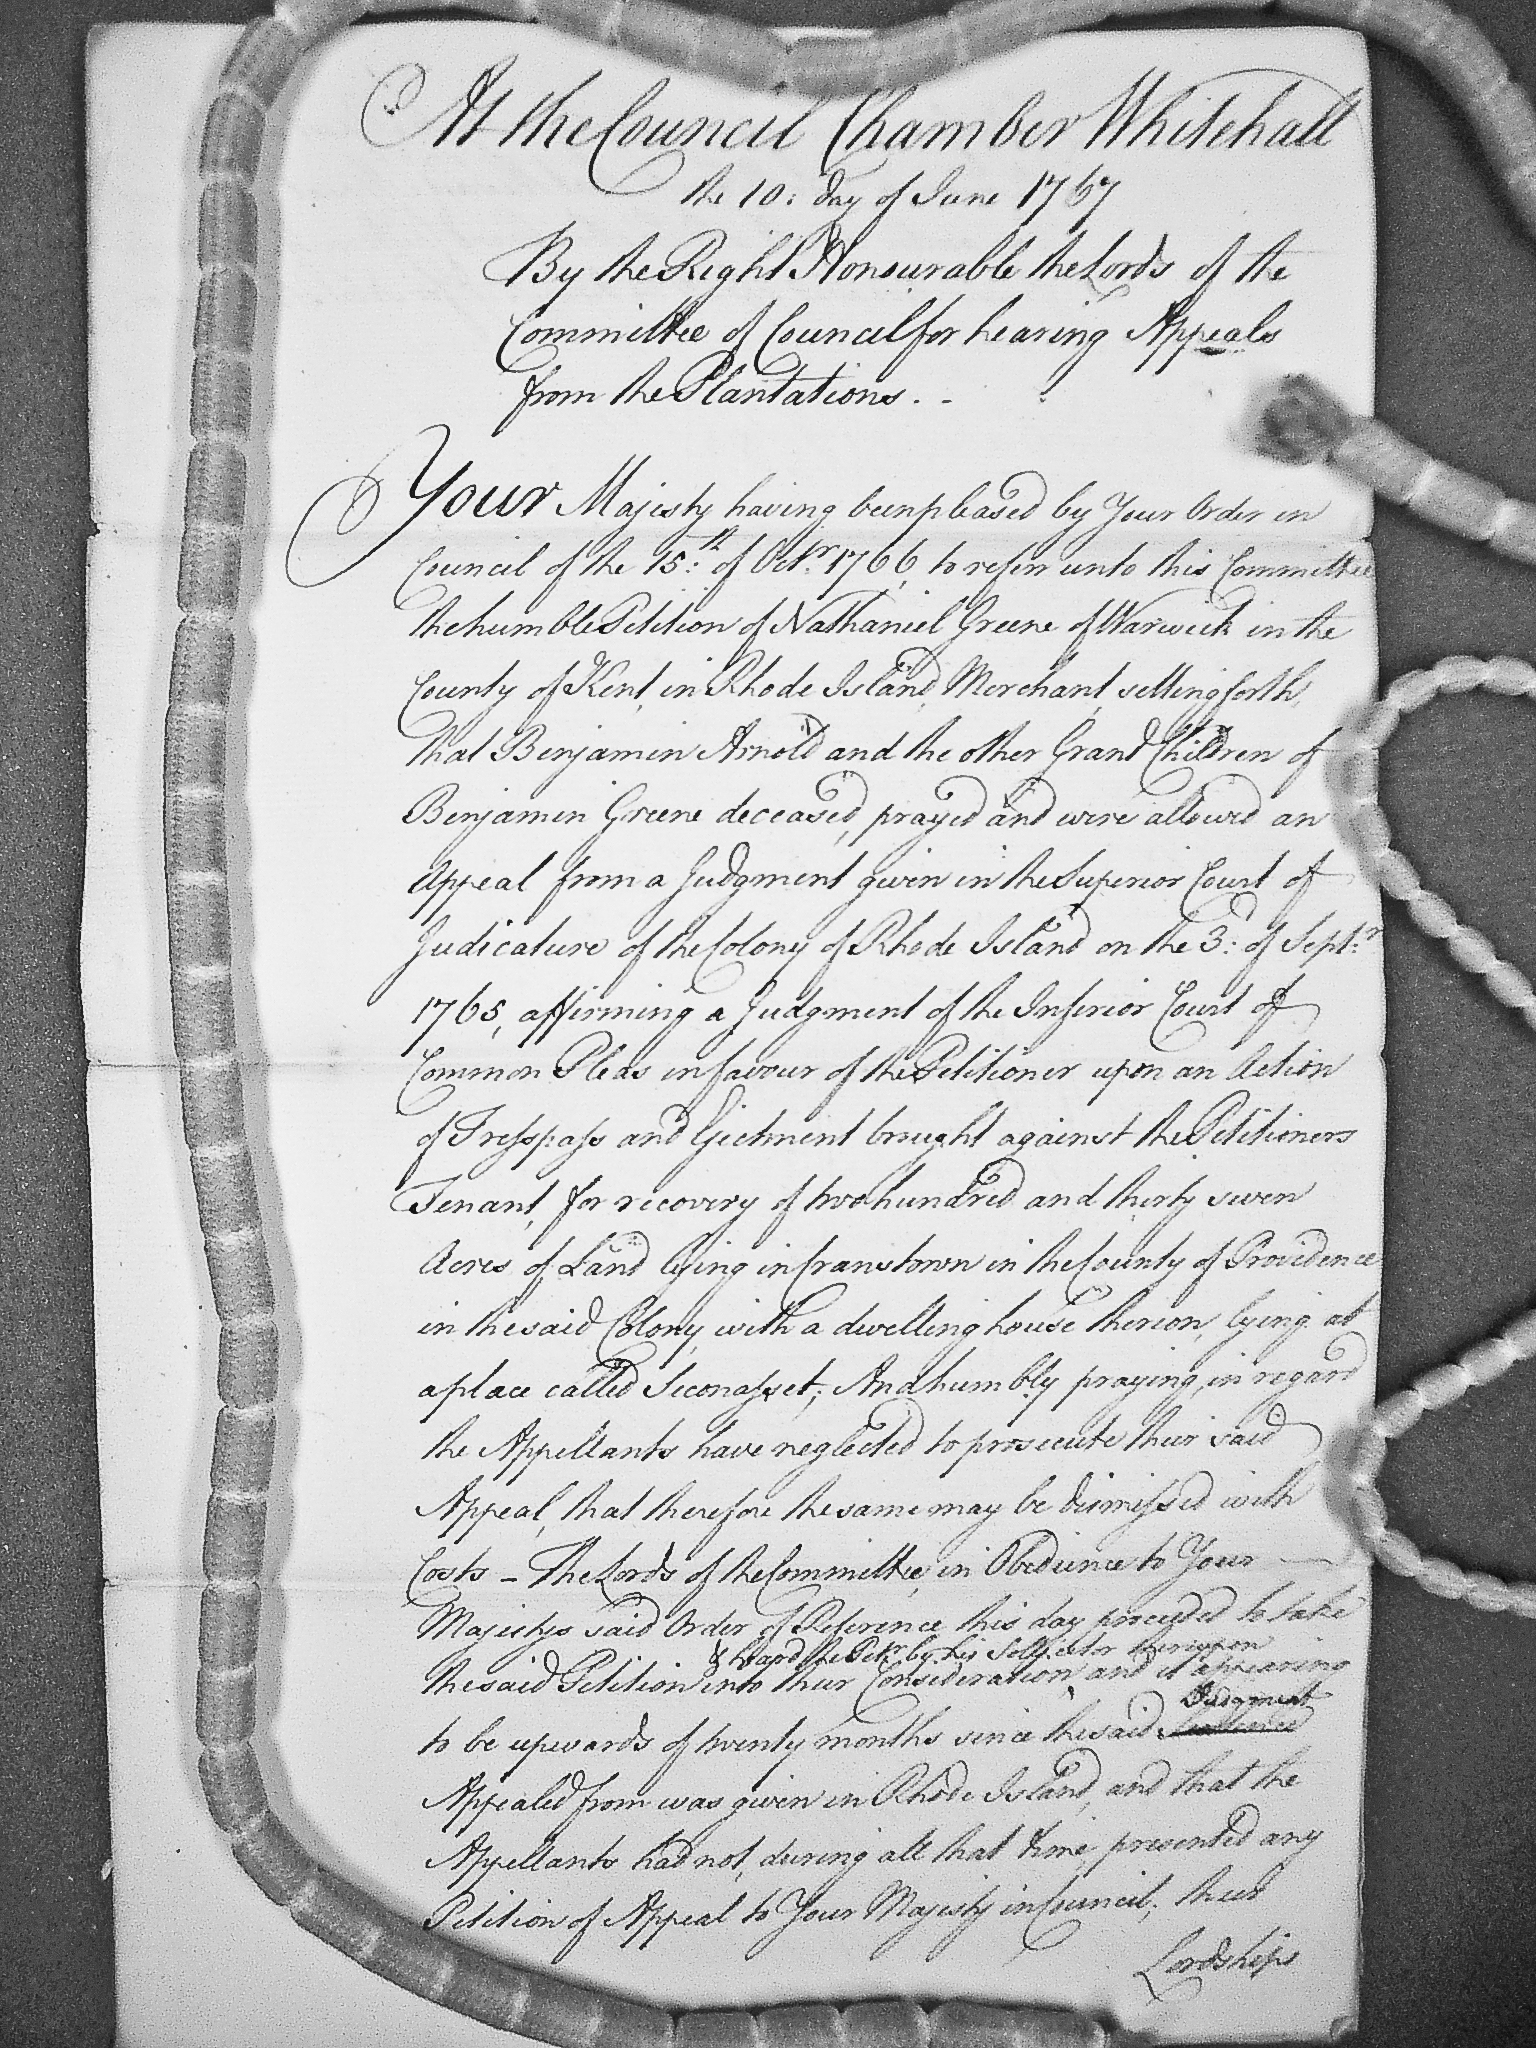 At the Council Chamber Whitehall
the 10: day of June 1767
By the Right Honourable the Lords of the
Committee of Council for hearing Appeals
from the Plantations. -
Your Majesty having been pleased by Your Order in
Council of the 15:th of Octr. 1766, to refer unto this Committee
the humble Petition of Nathaniel Greene of Warwick in the
County of Kent, in Rhode Island, Merchant, setting forth,
that Benjamin Arnold and the other Grand Children of
Benjamin Greene deceased, prayed and were allowed an
Appeal from a Judgment given in the Superior Court of
Judicature of the Colony of Rhode Island on the 3:d of Sept:r
1765, affirming a Judgment of the Inferior Court of
Common Pleas in favour of the Petitioner upon an Action
of Tresspass and Ejectment brought against the Petitioners
Tenant, for recovery of two hundred and thirty seven
Acres of Land lying in Cranstown in the County of Providence
in the said Colony, with a dwelling house thereon, lying at
a place called Seconasset; And humbly praying, in regard
the Appellants have neglected to prosecute their said
Appeal, that therefore the same may be dismissed with
Costs - The Lords of the Committee, in Obedience to Your
Majestys said Order of Reference, this day proceeded to take
& heard the Petr. by his Sollicitor thereupon
the said Petition into their Consideration, and it appearing
Judgment
to be upwards of twenty months since the said
Appealed from was given in Rhode Island, and that the
Appellants had not, during all that time, presented any
Petition of Appeal to Your Majesty in Council; their
Lordships